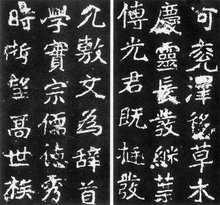 河兗澤銘草木
慶靈長發繼葉
傳光君既挺發
敷文為辭首
學實宗儒德秀
時哲望高世族